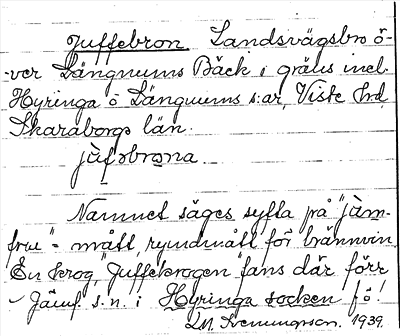 Juffebron Landsvägsbro ö-
-ver Längnums Bäck i gräns mel.
Hyringa o Längnums s:ar, Viste hrd,
Skaraborgs län.
jùfəbrωna
Namnet säges syfta på "jùm-
fru" = mått, rymdmått för brännvin
En krog, "Juffekrogen" fans där förr
Jämf. s.n. i Hyringa socken fö!
Sm. 1939.